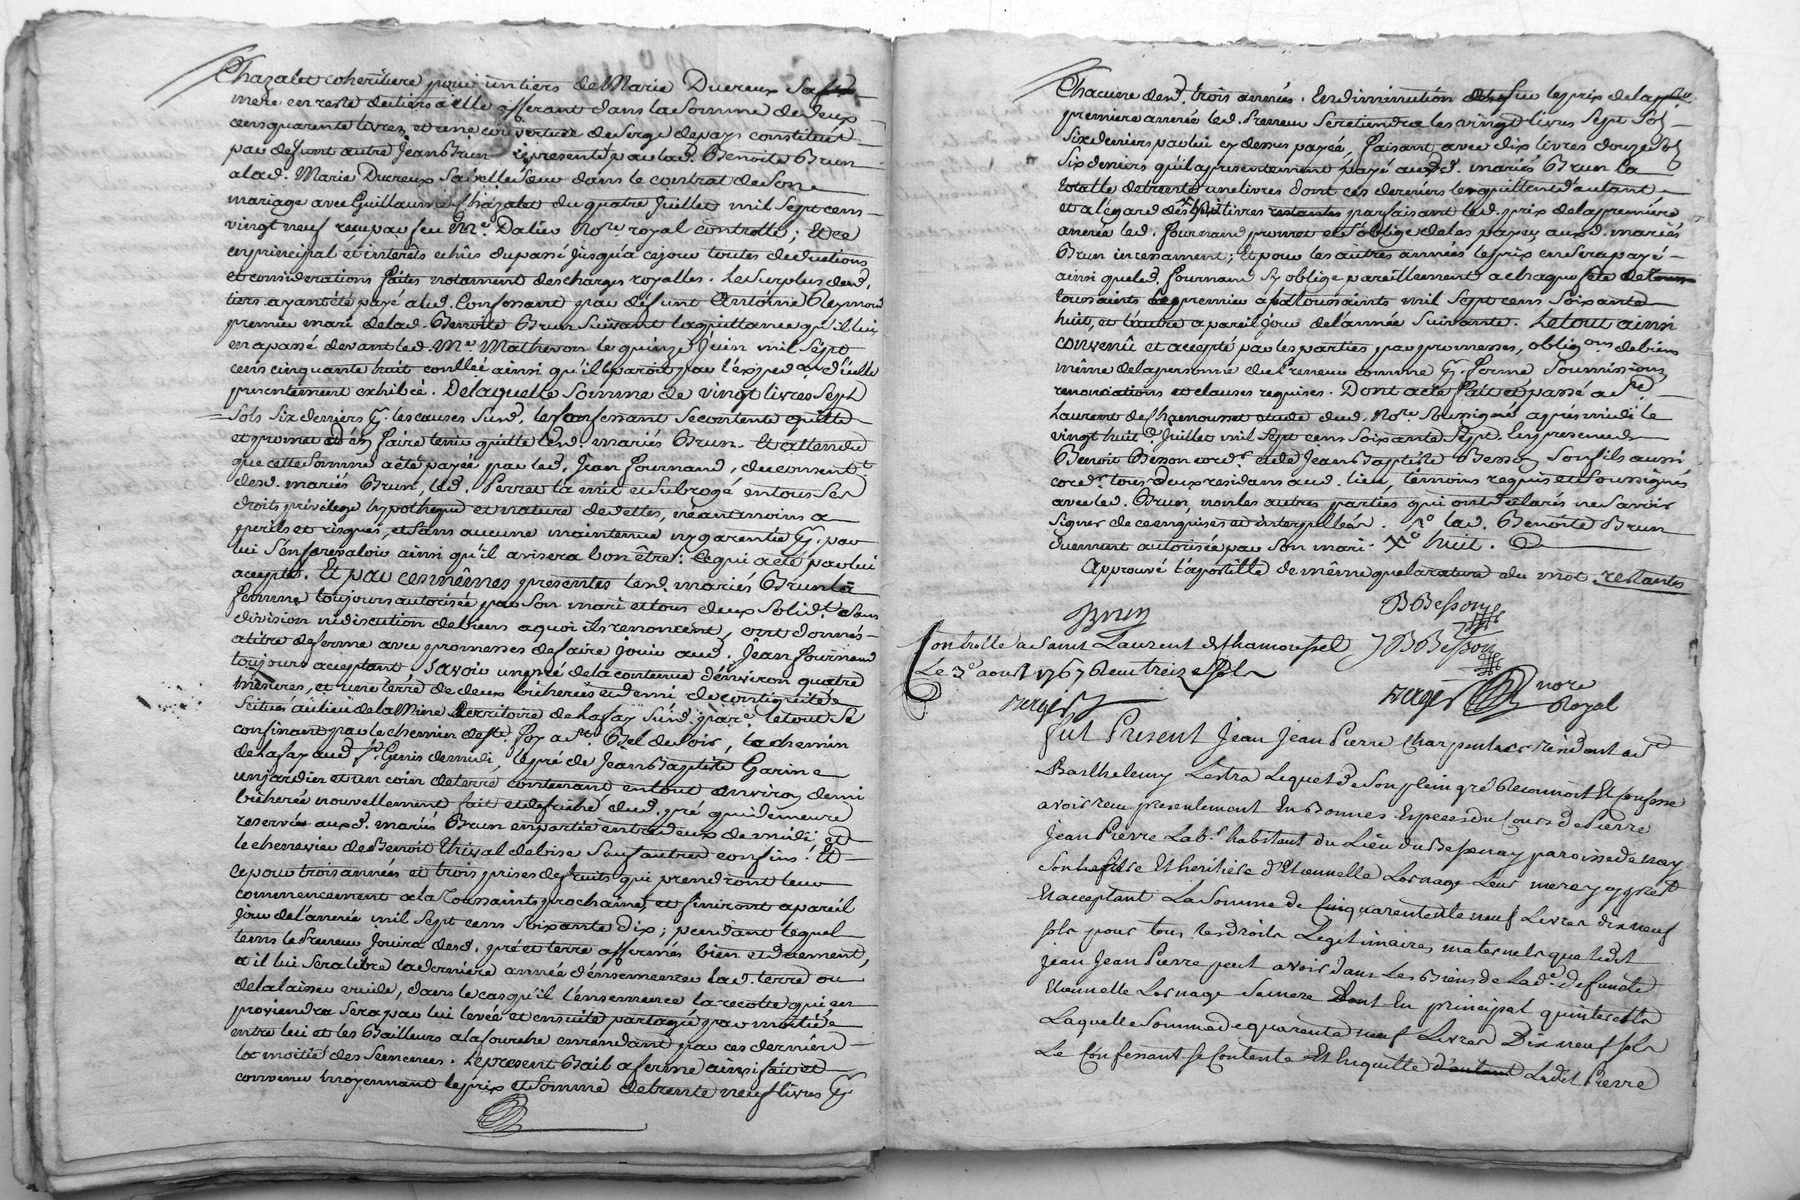 Chazalet coheritiere pour un tiers de Marie Ducreux sa
mere en reste de tiers a elle afferant dans la somme de deux
cens quarente livres et une couverture de serge de pays constitués
par defunt autre Jean Brun representé par lad. Benoite Brun
a lad. Marie Ducreux sa belle sœur dans le contrat de son
mariage avec Guillaume Chazalet du quatre Juillet mil sept cens
vingt neuf reçu par feu Me. Dalier Nore. royal controllé; Et ce
en principal et interets echus du passé jusqu'a ce jour toutes deductions
et considerations faites notament des charges royalles. Le surplus desd.
tiers ayant été payé aud. Confessant par défunt Antoine Reymond
premier mari de lad. Benoite Brun suivant la quittance qu'il lui
en a passé devant led. Me. Mathevon le quinze Juin mil sept
cens cinquante huit conllée ainsi qu'il paroit par l'expedon. d'icelle
presentement exhibée. De laquelle somme de vingt livres sept
sols six deniers p. les causes susd. le confessant se contente quitte
et promet en faire tenir quitte lesd. mariés Brun. Et attendu
que cette somme a été payée par led. Jean Fournand, du consentt.
desd. mariés Brun, led. Perret l'a mit et subrogé en tous ses
droits privilege hypotheque et nature de dettes, néantmoins a
perils et risques, et sans aucune maintenue ny garentie p. par
lui s'en prevaloir ainsi qu'il avisera bon être: Ce qui a été par lui
accepté. Et par ces mêmes presentes lesd. mariés Brun la
femme toujours autorisée par son mari et tous deux solidt. sans
division ni discution de biens a quoi ils renoncent, ont donnés
a titre de ferme avec promesses de faire jouir aud. Jean Fournand
toujours acceptant savoir un pré de la contenue d'environ quatre
mesures, et une terre de deux bicherées et demi de contiguité
situés au lieu de la Mine territoire de Lafay susd. parse. le tout se
confinant par le chemin de St. Foy a St. Bel de soir, le chemin
de Lafay aud. St. Genis de midi, le pré de Jean Baptiste Garin
un jardier et un coin de terre contenant en tout environ demi
bicherée nouvellement fait et defriché dud. pré qui demeure
reservée auxd. mariés Brun en partie entre deux de midi, et
le chenevier de Benoit Thival de bise sauf autres confins: Et
ce pour trois années et trois prises de fruits qui prendront leur
commencement a la Toussaints prochaine, et finiront a pareil
jour de l'année mil sept cens soixante dix; pendant lequel
tems le Preneur jouira desd. pré et terre affermés bien et duement,
et il lui sera libre la derniere année d'ensemencer lad. terre ou
de la laisser vuide, dans le cas qu'il l'ensemence la recolte qui en
proviendra sera par lui levée et ensuite partagée par moitié
entre lui et les Bailleurs a la fourche en rendant par ces derniers
la moitié des semences. Le present Bail a ferme ainsi fait et
convenu moyennant le prix et somme de trente neuf livres p.
Chacune desd. trois années. En diminution sur le prix de la
premiere année led. Preneur se retiendra les vingt livres sept sols
six deniers par lui cy dessus payée, faisant avec dix livres douze sols
six deniers qu'il a presentement payé auxd. mariés Brun la
totalle de trente une livres dont ces derniers le quittent d'autant
et a l'égard des x huit livres restantes parfaisant led. prix de la premiere
année led. Fournand promet et s'oblige de les payer auxd. mariés
Brun incessament; Et pour les autres années le prix en sera payé
ainsi que led. Fournand s'y oblige pareillement a chaque fete de
toussaints le premier a la toussaints mil sept cens soixante
huit, et l'autre a pareil jour de l'année suivante. Le tout ainsi
convenû et accepté par les parties par promesses, obligons. de biens
même de la personne du Preneur comme p. ferme soumissions
renonciations et clauses requises. Dont acte fait et passé a St.
Laurent de Chamousset etude dud. Nore. soussigné après midi le
vingt huit Juillet mil sept cens soixante sept. En presence de
Benoit Besson cordr. et de Jean Baptiste Besson son fils aussi
cordr. tous deux residans aud. lieu, temoins requis et soussignés
avec led. Brun, non les autres parties qui ont déclarés ne savoir
signer de ce enquises et interpellées. lad. Benoite Brun
duement autorisée par son mari. Xo huit.
Approuvé l'apostille de même que la rature du mot restantes
Brun BBesson
Controllé a Saint Laurent de Chamousset JBBesson
Le 3e aout 1767 Reçu treize sols
verger verger nore
Royal
Fut Present Jean Jean Pierre charpentier résidant a St
Barthelemy Lestra Lequel de son plein gré Reconnoit Et confesse
avoir reçu presentement En Bonnes Especes du cours de Pierre
Jean Pierre Labr. habitant du Lieu du Bessenay paroisse de nery
son frere Et heritier d'Etiennette Lornage Leur mere cy present
Et acceptant La somme de quarente neuf Livres dix neuf
sols pour tous les droits Legitimaires maternels que ledit
Jean Jean Pierre peut avoir dans Les Biens de Lade. defunte
Etiennette Lornage sa mere En principal qu'interests
Laquelle somme de quarente neuf Livres Dix neuf sols
Le Confessant se Contente Et En quitte d'autant Ledit Pierre